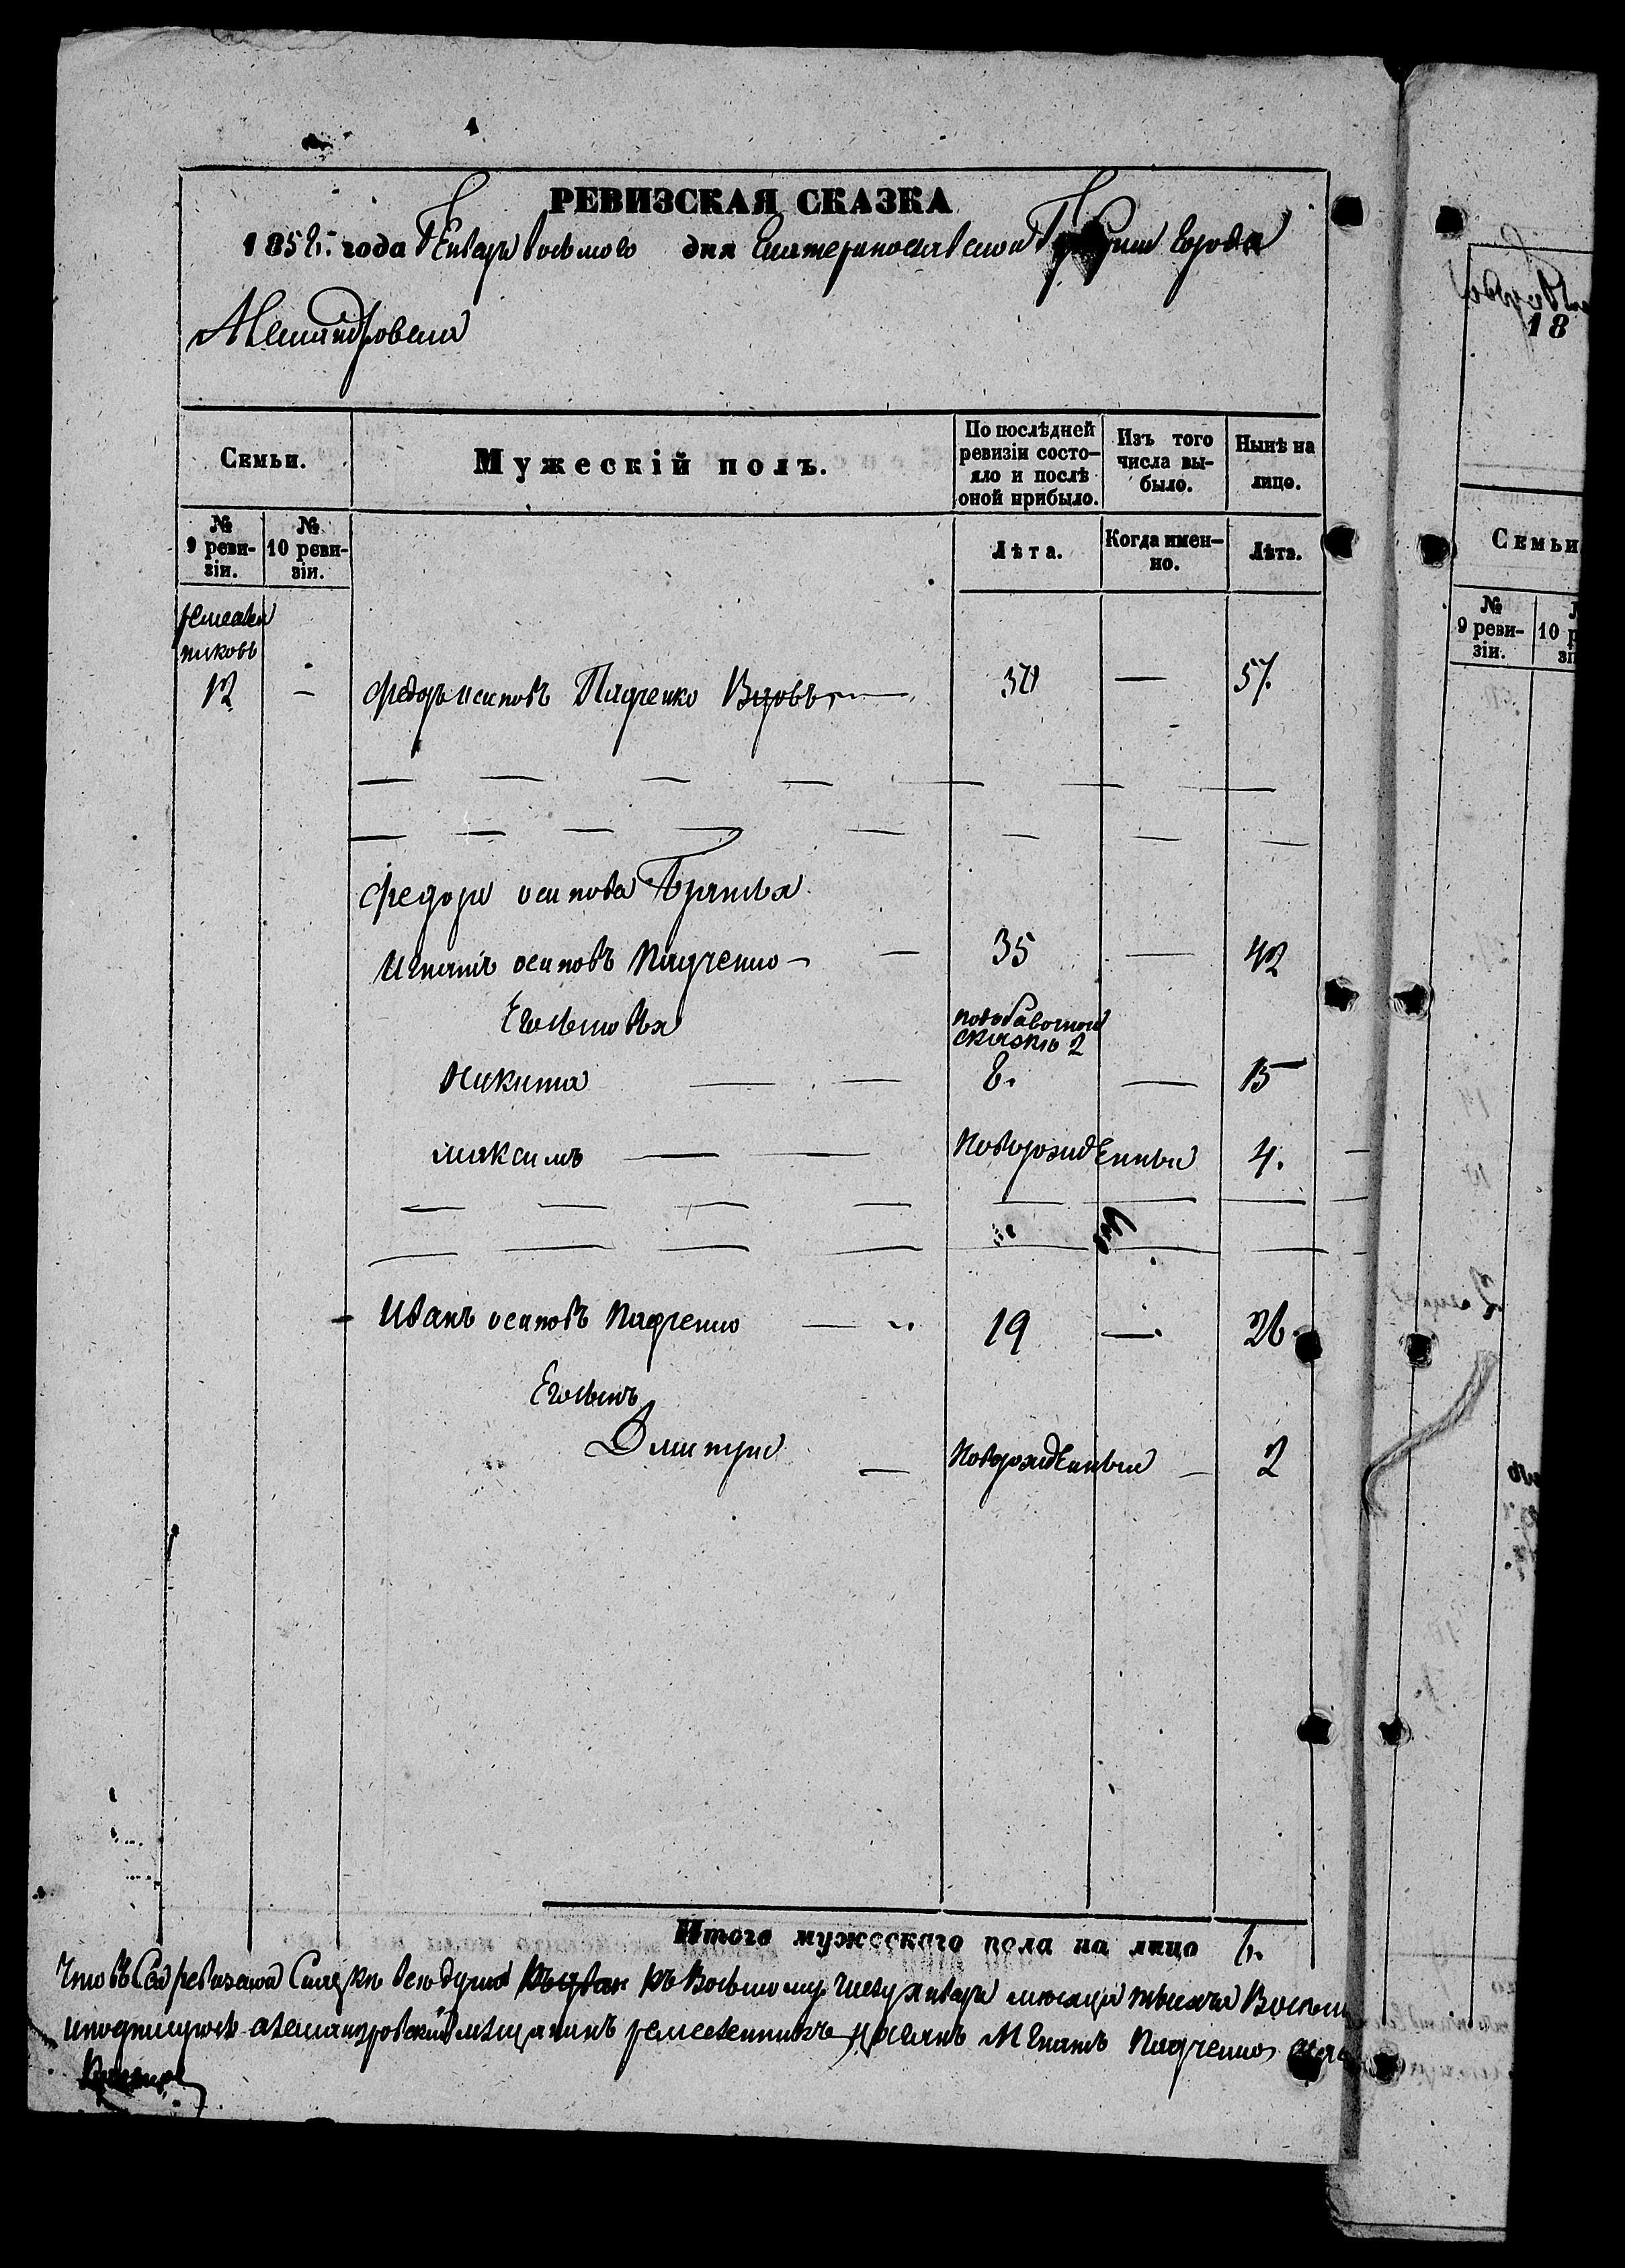 РЕВИЗСКАЯ СКАЗКА
1858. года Генваря восьмого дня Екатеринославской Губернии города
Александровска
Семьи.
Мужескій полъ.
По послѣдней ревизіи состо-
яло и послѣ
оной прибыло.
Изъ того
числа вы-
было.
Нынѣ на
лицо.
№
9 реви-
зіи.
№
10 реви-
зіи.
Лѣта.
Когда имен-
но.
Лѣта.
ремеслен
никовъ
12 —
Федоръ осиповъ Падченко — 57.
Федора осипова Братья
Игнатъ осиповъ Падченко — 35 — 42
Его сыновья
подобавочной
сказкѣ 2
Никита — 8. — 15
максимъ — новорожденный 4.
Иванъ осиповъ Падченко — 19 — 26.
Его сынъ
Дмитрий — новорожденный — 2
Итого мужескаго пола на лицо 6.
Что въ Сей ревизской Сказке все души къ восьмому числу января месяца тысяча
александровский мещанинъ Игнатъ Падченко
18
Семьи
№
9 реви-
зіи.
10 р
зі